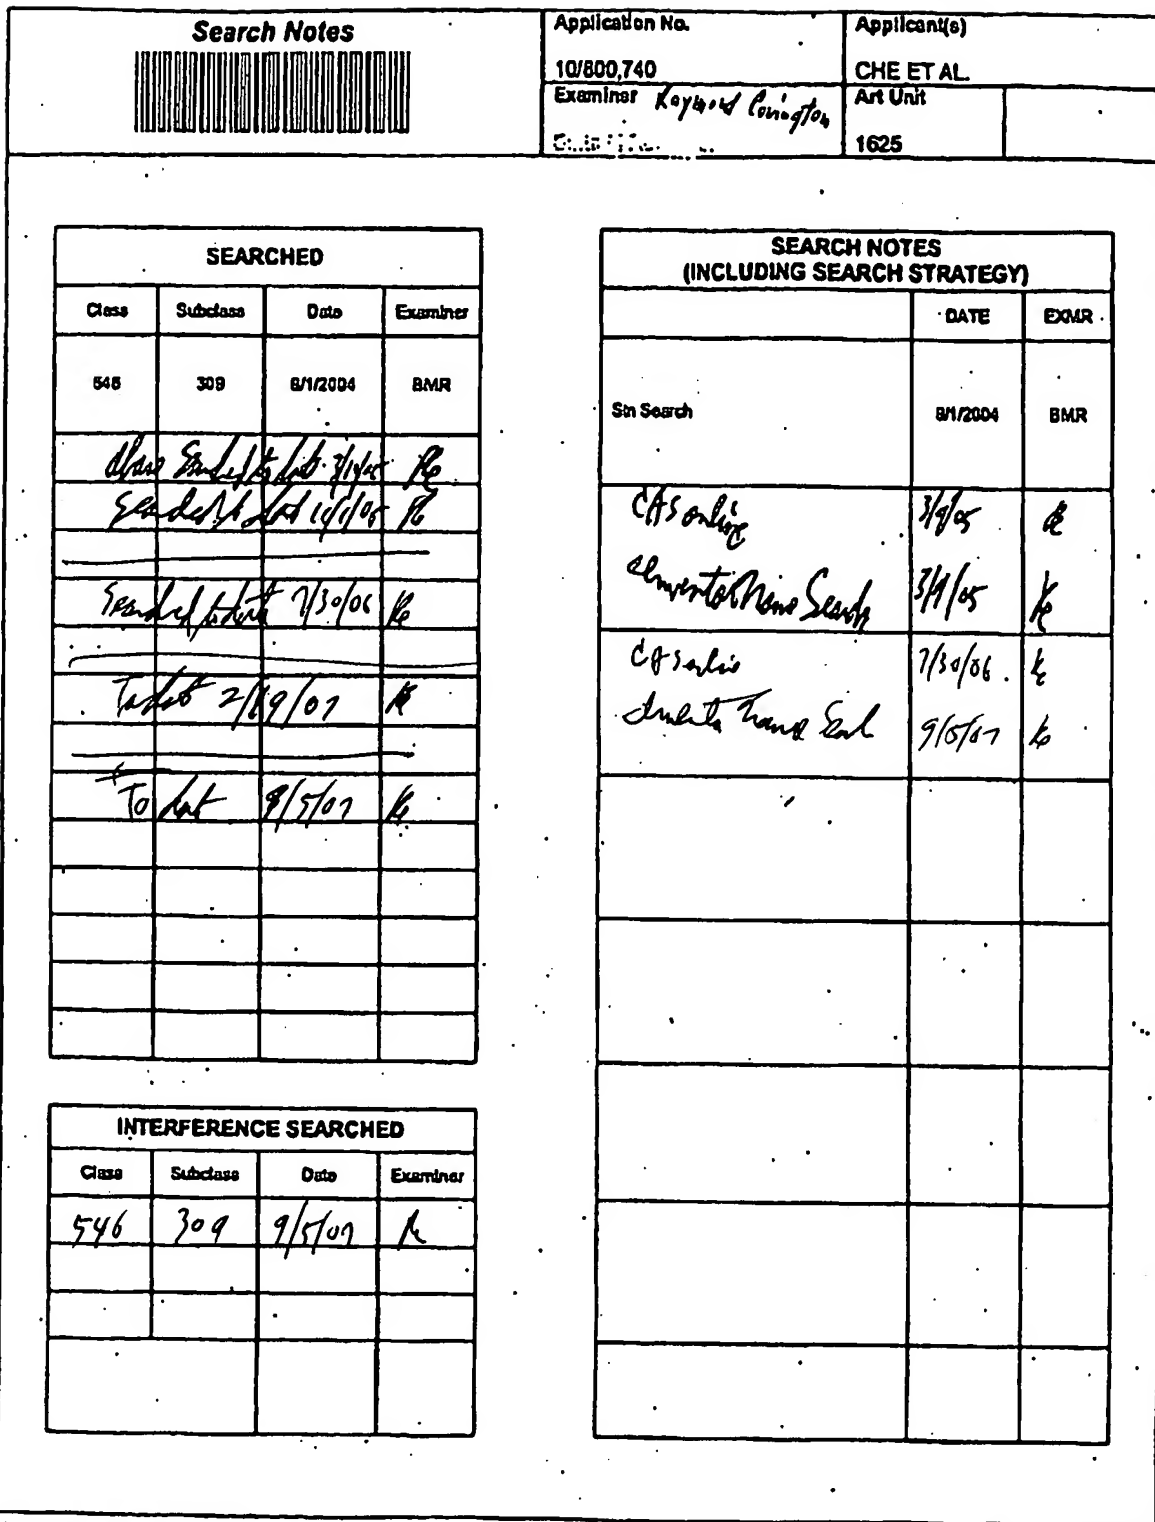 Search Notes
Application No.
Applicant(s)
10/800,740
CHE ET AL.
Examiner Raymond Covington
Art Unit
1625
SEARCHED
Class Subclass Date Examiner
546 309 8/1/2004 BMR
above Searched to dat 3/9/05 RC
Searched to dat RC
Searched to dat 7/30/06 RC
To dat 2/19/07 RC
To dat 9/5/07 RC
INTERFERENCE SEARCHED
Class Subclass Date Examiner
546 309 9/5/07 RC
SEARCH NOTES
(INCLUDING SEARCH STRATEGY)
DATE EXMR
Stn Search 8/1/2004 BMR
CAS online 3/9/05 RC
Inventor Name Search 3/9/05 RC
CAS online 7/30/06 RC
Inventor Name Search 9/5/07 RC